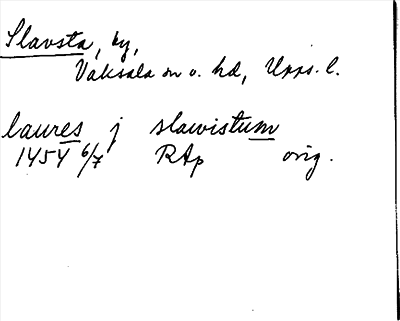 Slavsta, by,
Vaksala sn o. hd, Upps. l.
laures j slawistum
1454 6/7 RAp orig.